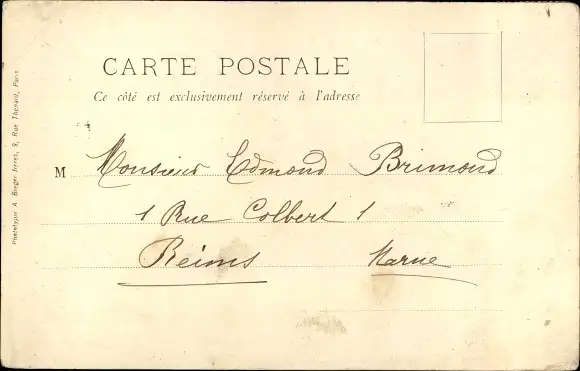 CARTE POSTALE
Ce côté est exclusivement réservé à l'adresse
M Monsieur Edmond Brimond
1 Rue Colbert 1
Reims Marne
Phototypie A. Berger frères, 9, Rue Thénard, Paris